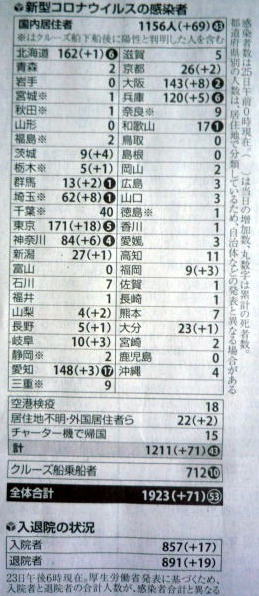 新型コロナウイルスの感染者
国内居住者 1156人(+69)㊸
※はクルーズ船下船後に陽性と判明した人を含む
北海道 162(+1)❻
青森 2
岩手 0
宮城※ 1
秋田※ 1
山形 0
福島※ 2
茨城 9(+4)
栃木※ 5(+1)
群馬 13(+2)❶
埼玉※ 62(+8)❶
千葉※ 40
東京 171(+18)❺
神奈川 84(+6)❹
新潟 27(+1)
富山 0
石川 7
福井 1
山梨 4(+2)
長野 5(+1)
岐阜 10(+3)
静岡※ 2
愛知 148(+3)⓱
三重※ 9
滋賀 5
京都 26(+2)
大阪 143(+8)❷
兵庫 120(+5)❻
奈良※ 9
和歌山 17❶
鳥取 0
島根 0
岡山 2
広島 3
山口 3
徳島※ 1
香川 1
愛媛 3
高知 11
福岡 9(+3)
佐賀 1
長崎 1
熊本 7
大分 23(+1)
宮崎 2
鹿児島 0
沖縄 4
空港検疫 18
居住地不明・外国居住者ら 22(+2)
チャーター機で帰国 15
計 1211(+71)㊸
クルーズ船乗船者 712⑩
全体合計 1923(+71)53
感染者数は25日午前0時現在。( )は当日の増加数、丸数字は累計の死者数。
都道府県別の人数は、居住地で分類しているため、自治体などの発表と異なる場合がある
入退院の状況
入院者 857(+17)
退院者 891(+19)
23日午後6時現在。厚生労働省発表に基づくため、
入院者と退院者の合計人数が、感染者合計と異なる